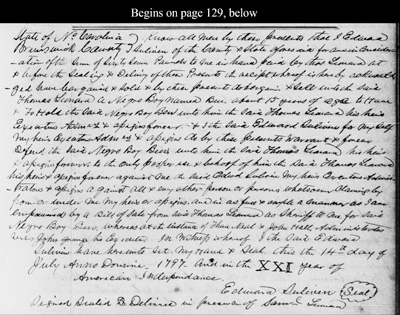 Begins on page 129, below
State of No Carolina } Know all men by these presents that I Edward
Brunswick County } Sulivan of the County & State aforesaid for and in Consider
-ation of the Sum of Sixty Seven Pounds to me in hand paid by Thos Leonard at
& before the Sealing & Delivery of these Presents the receipt whereof is hereby acknowled
ged have bargained & sold & by these present do bargain & Sell unto the said
Thomas Leonard a Negro Boy Named Ben about 15 years of age to Have
& To Hold the said Negro Boy Ben unto him the said Thomas Leonard his heirs
Executors Admrs & assigns forever & I the said Edward Sulivan for my Self
my heirs Executors Admrs & assigns do by these presents Warrant & forever
Defend the said Negro Boy Ben unto him the said Thomas Leonard his heirs
& assigns forever to the Only proper use & behoof of him the said Thomas Leonard
his heirs & assigns forever against me the said Edwd Sulivan my heirs Executors Adminis
trators & assigns against all & any other person or persons whatsoever Claiming by
from or under me my heirs or assigns and in as full & ample a manner as I am
empowered by a Bill of Sale from said Thomas Leonard as Sheriff to me for said
Negro Boy Ben, whereas at the of Thos Neal & John Hall Administrators
John his Executor In Witness whereof I the said Edward
Sulivan have hereunto set my Hand & Seal this the 14th day of
July Anno Domini 1797 And in the XXI year of
American Independance
Edward Sulivan (Seal)
Signed Sealed & Delivered in presence of Saml Leonard